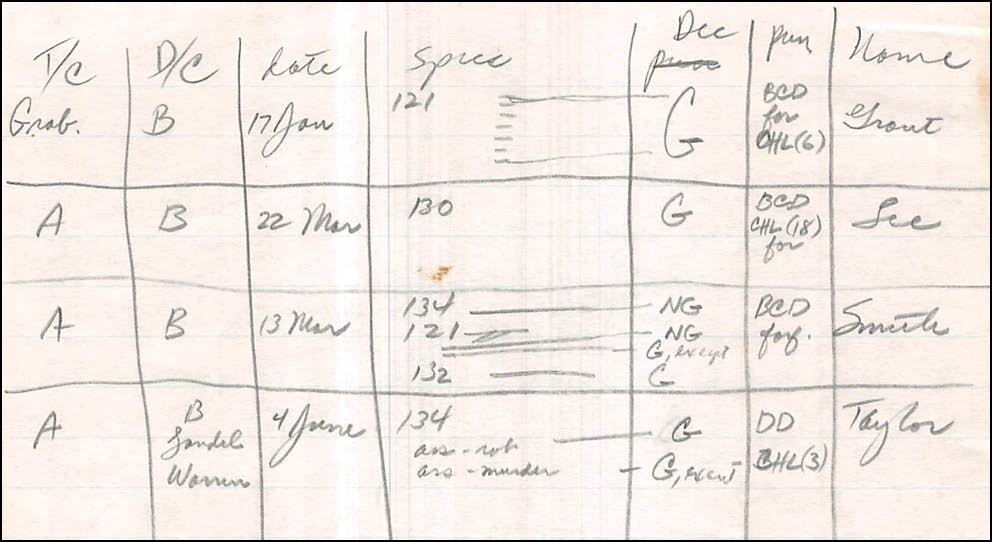 T/C D/C Date Spec Dec pun Name
Grab. B 17 Jan 121 G BCD for CHL(6) Grout
A B 22 Mar 130 G BCD CHL(18) for Lee
A B 13 Mar 134 NG BCD forf. Smith
121 NG
G, except
132 G
A B 4 June 134 G DD Taylor
ass - rob CHL(3)
Warren ass - murder G, except